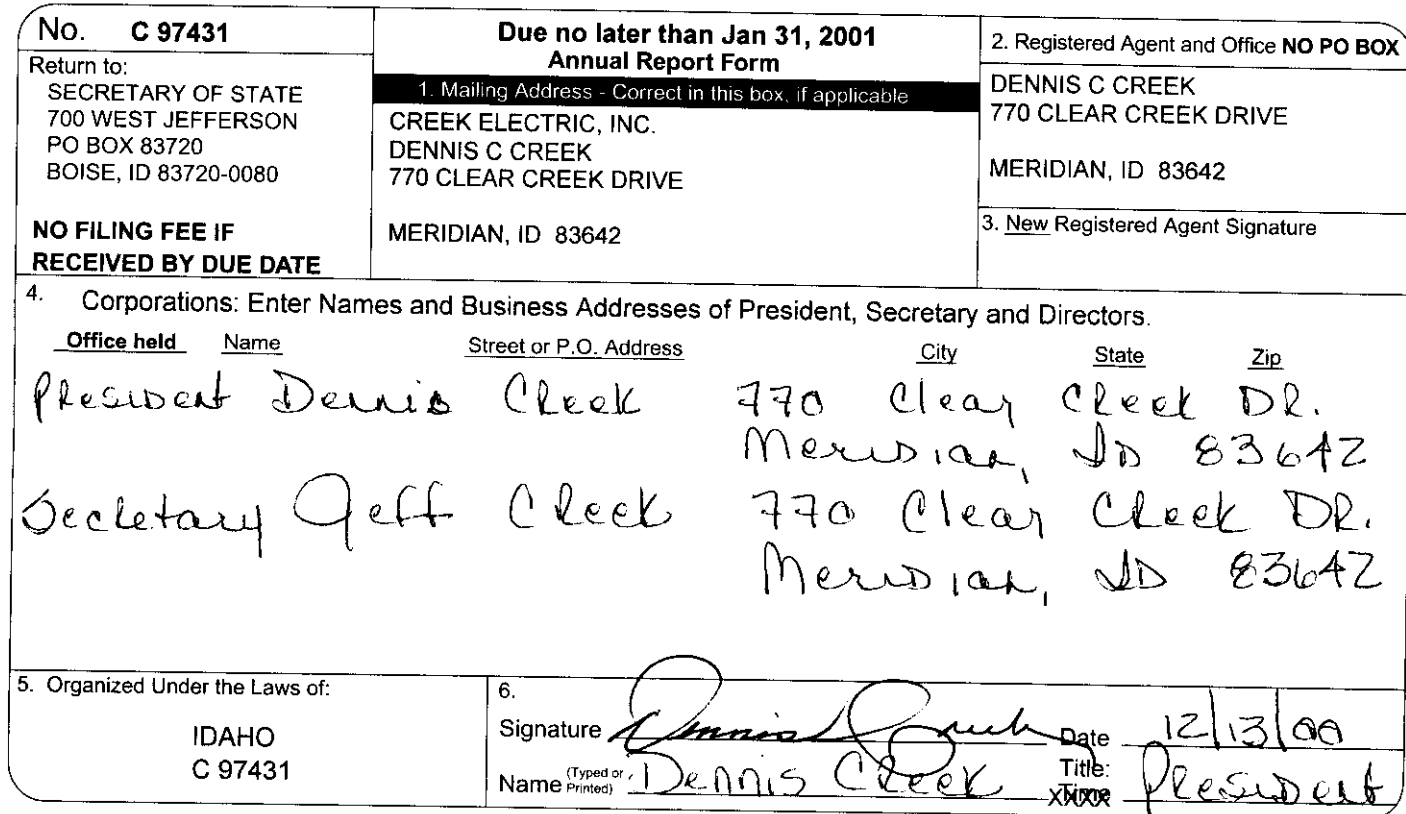 No. C 97431
Return to:
SECRETARY OF STATE
700 WEST JEFFERSON
PO BOX 83720
BOISE, ID 83720-0080
NO FILING FEE IF
RECEIVED BY DUE DATE
Due no later than Jan 31, 2001
Annual Report Form
1. Mailing Address - Correct in this box, if applicable
CREEK ELECTRIC, INC.
DENNIS C CREEK
770 CLEAR CREEK DRIVE
MERIDIAN, ID 83642
2. Registered Agent and Office NO PO BOX
DENNIS C CREEK
770 CLEAR CREEK DRIVE
MERIDIAN, ID 83642
3. New Registered Agent Signature
4. Corporations: Enter Names and Business Addresses of President, Secretary and Directors.
Office held Name Street or P.O. Address City State Zip
President Dennis Creek 770 Clear Creek DR.
Meridian, ID 83642
Secretary Jeff Creek 770 Clear Creek DR.
Meridian, ID 83642
5. Organized Under the Laws of:
IDAHO
C 97431
6.
Signature Dennis Creek Date 12/13/00
Name (Typed or Printed) Dennis Creek Title: President